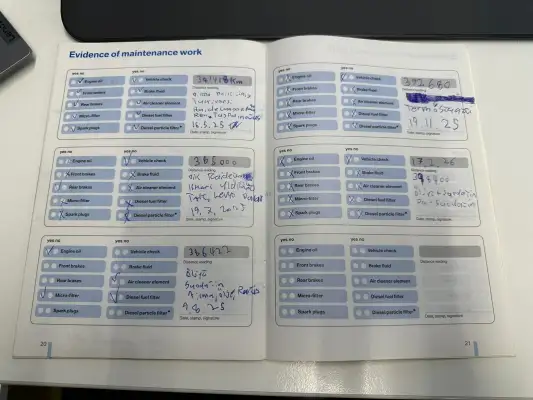 Evidence of maintenance work
yes no
yes no
Engine oil
Vehicle check
Front brakes
Brake fluid
Rear brakes
Air cleaner element
Micro-filter
Diesel fuel filter
Spark plugs
Diesel particle filter*
Distance reading
16.5.25
Date, stamp, signature
yes no
yes no
Engine oil
Vehicle check
Front brakes
Brake fluid
Rear brakes
Air cleaner element
Micro-filter
Diesel fuel filter
Spark plugs
Diesel particle filter*
365000
Distance reading
Date, stamp, signature
yes no
yes no
Engine oil
Vehicle check
Front brakes
Brake fluid
Rear brakes
Air cleaner element
Micro-filter
Diesel fuel filter
Spark plugs
Diesel particle filter*
366422
Distance reading
Date, stamp, signature
20
yes no
yes no
Engine oil
Vehicle check
Front brakes
Brake fluid
Rear brakes
Air cleaner element
Micro-filter
Diesel fuel filter
Spark plugs
Diesel particle filter*
392.680
Distance reading
19.11.25
Date, stamp, signature
yes no
yes no
Engine oil
Vehicle check
Front brakes
Brake fluid
Rear brakes
Air cleaner element
Micro-filter
Diesel fuel filter
Spark plugs
Diesel particle filter*
Distance reading
Date, stamp, signature
yes no
yes no
Engine oil
Vehicle check
Front brakes
Brake fluid
Rear brakes
Air cleaner element
Micro-filter
Diesel fuel filter
Spark plugs
Diesel particle filter*
Distance reading
Date, stamp, signature
21